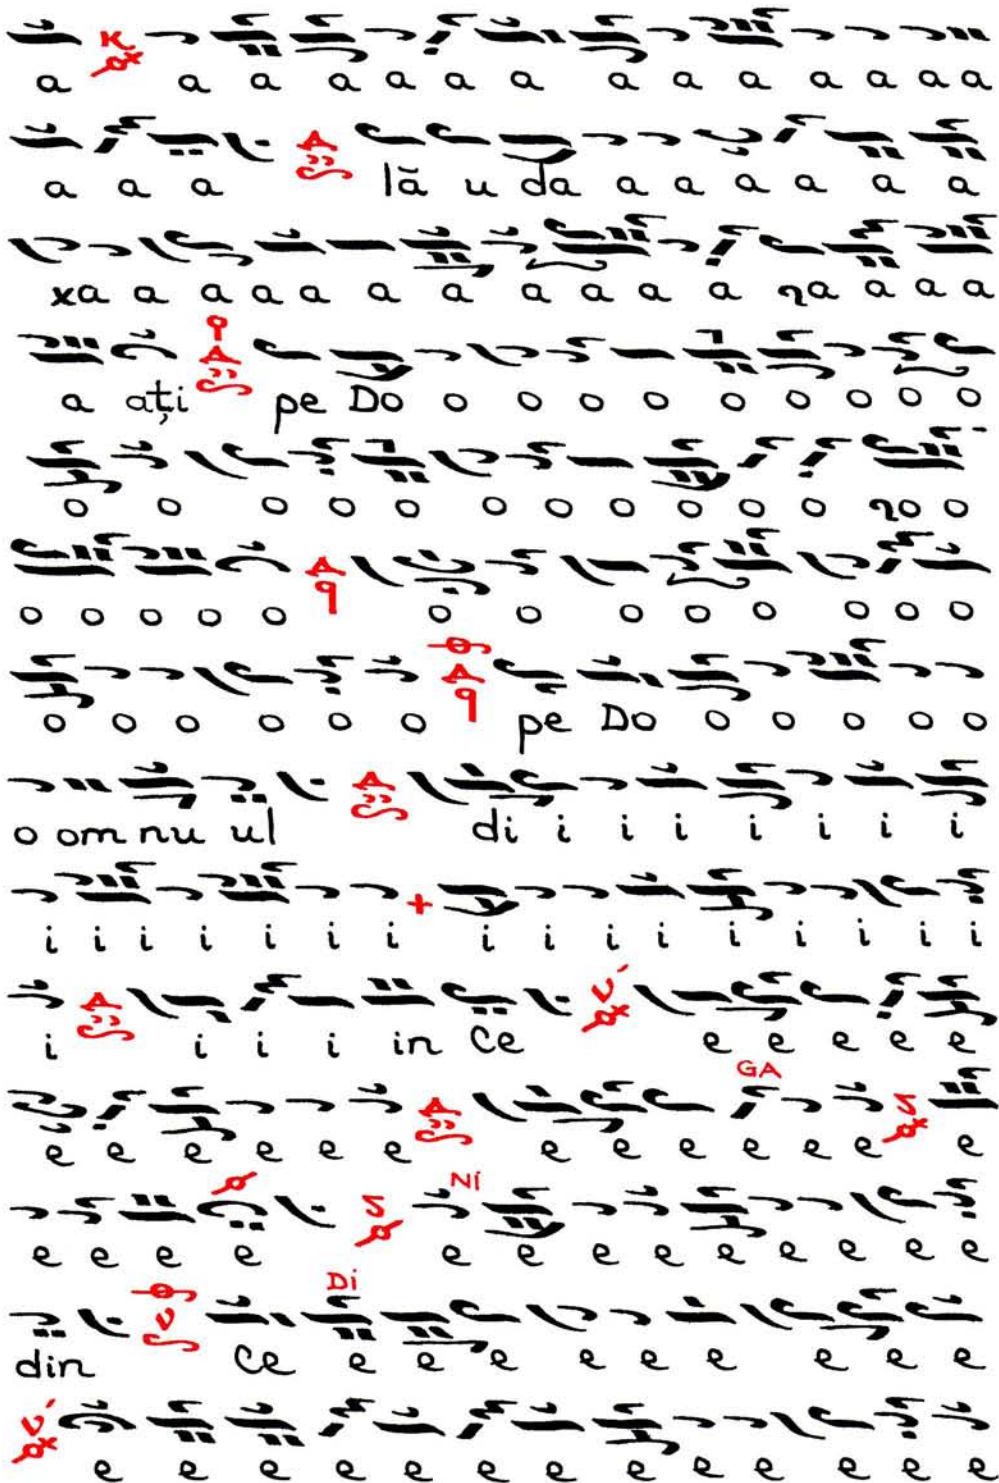 a a a a a a a a a a a a a a
a a a lă u da a a a a a a
xa a a a a a a a a a a ꝛa a a a
a ați pe Do o o o o o o o o
o o o o o o o o o o o ꝛo o
o o o o o o o o o o o o o
o o o o o o pe Do o o o o o
o om nu ul di i i i i i i i
i i i i i i i i i i i i i i i i
i i i i in ce e e e e e
GA
e e e e e e e e e e e e e
Ni
e e e e e e e e e e e e e
Di
din ce e e e e e e e e e
e e e e e e e e e e e e